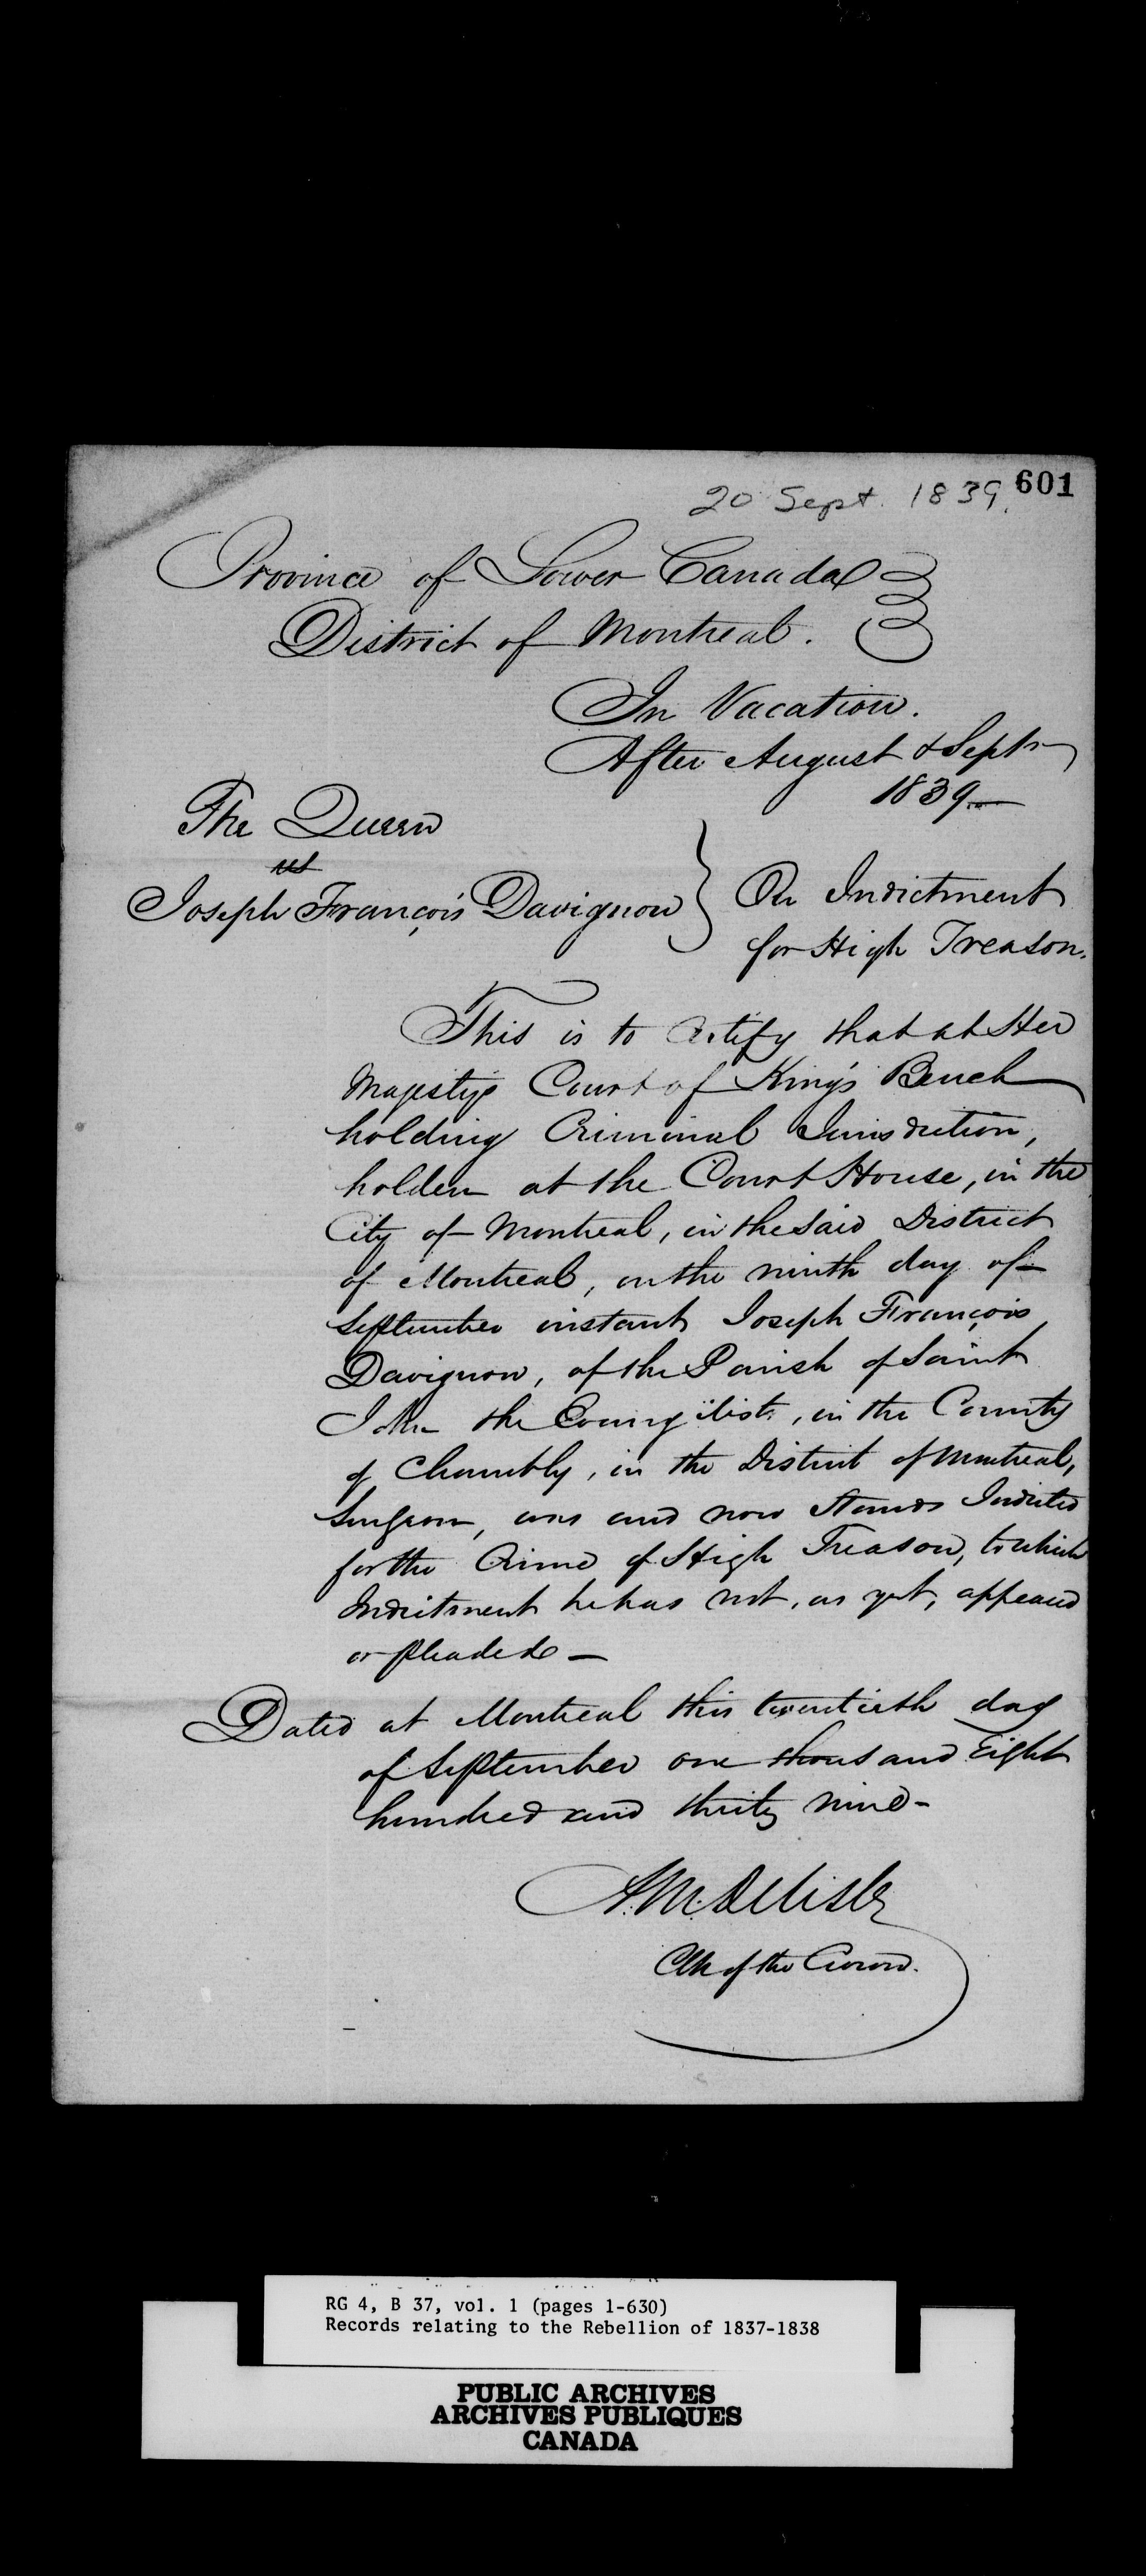 20 Sept. 1839.
601
Province of Lower Canada
District of Montreal.
In Vacation.
After August & Septr
1839—
The Queen
vs
Joseph François Davignon } On Indictment
for High Treason.
This is to Certify that at Her
Majesty's Court of King's Bench
holding Criminal Jurisdiction,
holden at the Court House, in the
City of Montreal, in the said District
of Montreal, on the ninth day of
September instant Joseph François
Davignon, of the Parish of Saint
John the Evangilist, in the County
of Chambly, in the District of Montreal,
Surgeon, was and now Stands Indicted
for the Crime of High Treason, to which
Indictment he has not, as yet, appeared
or pleaded—
Dated at Montreal this twentieth day
of September one thousand Eight
hundred and thirty nine-
A.M. Delisle
Clk of the Crown.
RG 4, B 37, vol. 1 (pages 1-630)
Records relating to the Rebellion of 1837-1838
PUBLIC ARCHIVES
ARCHIVES PUBLIQUES
CANADA